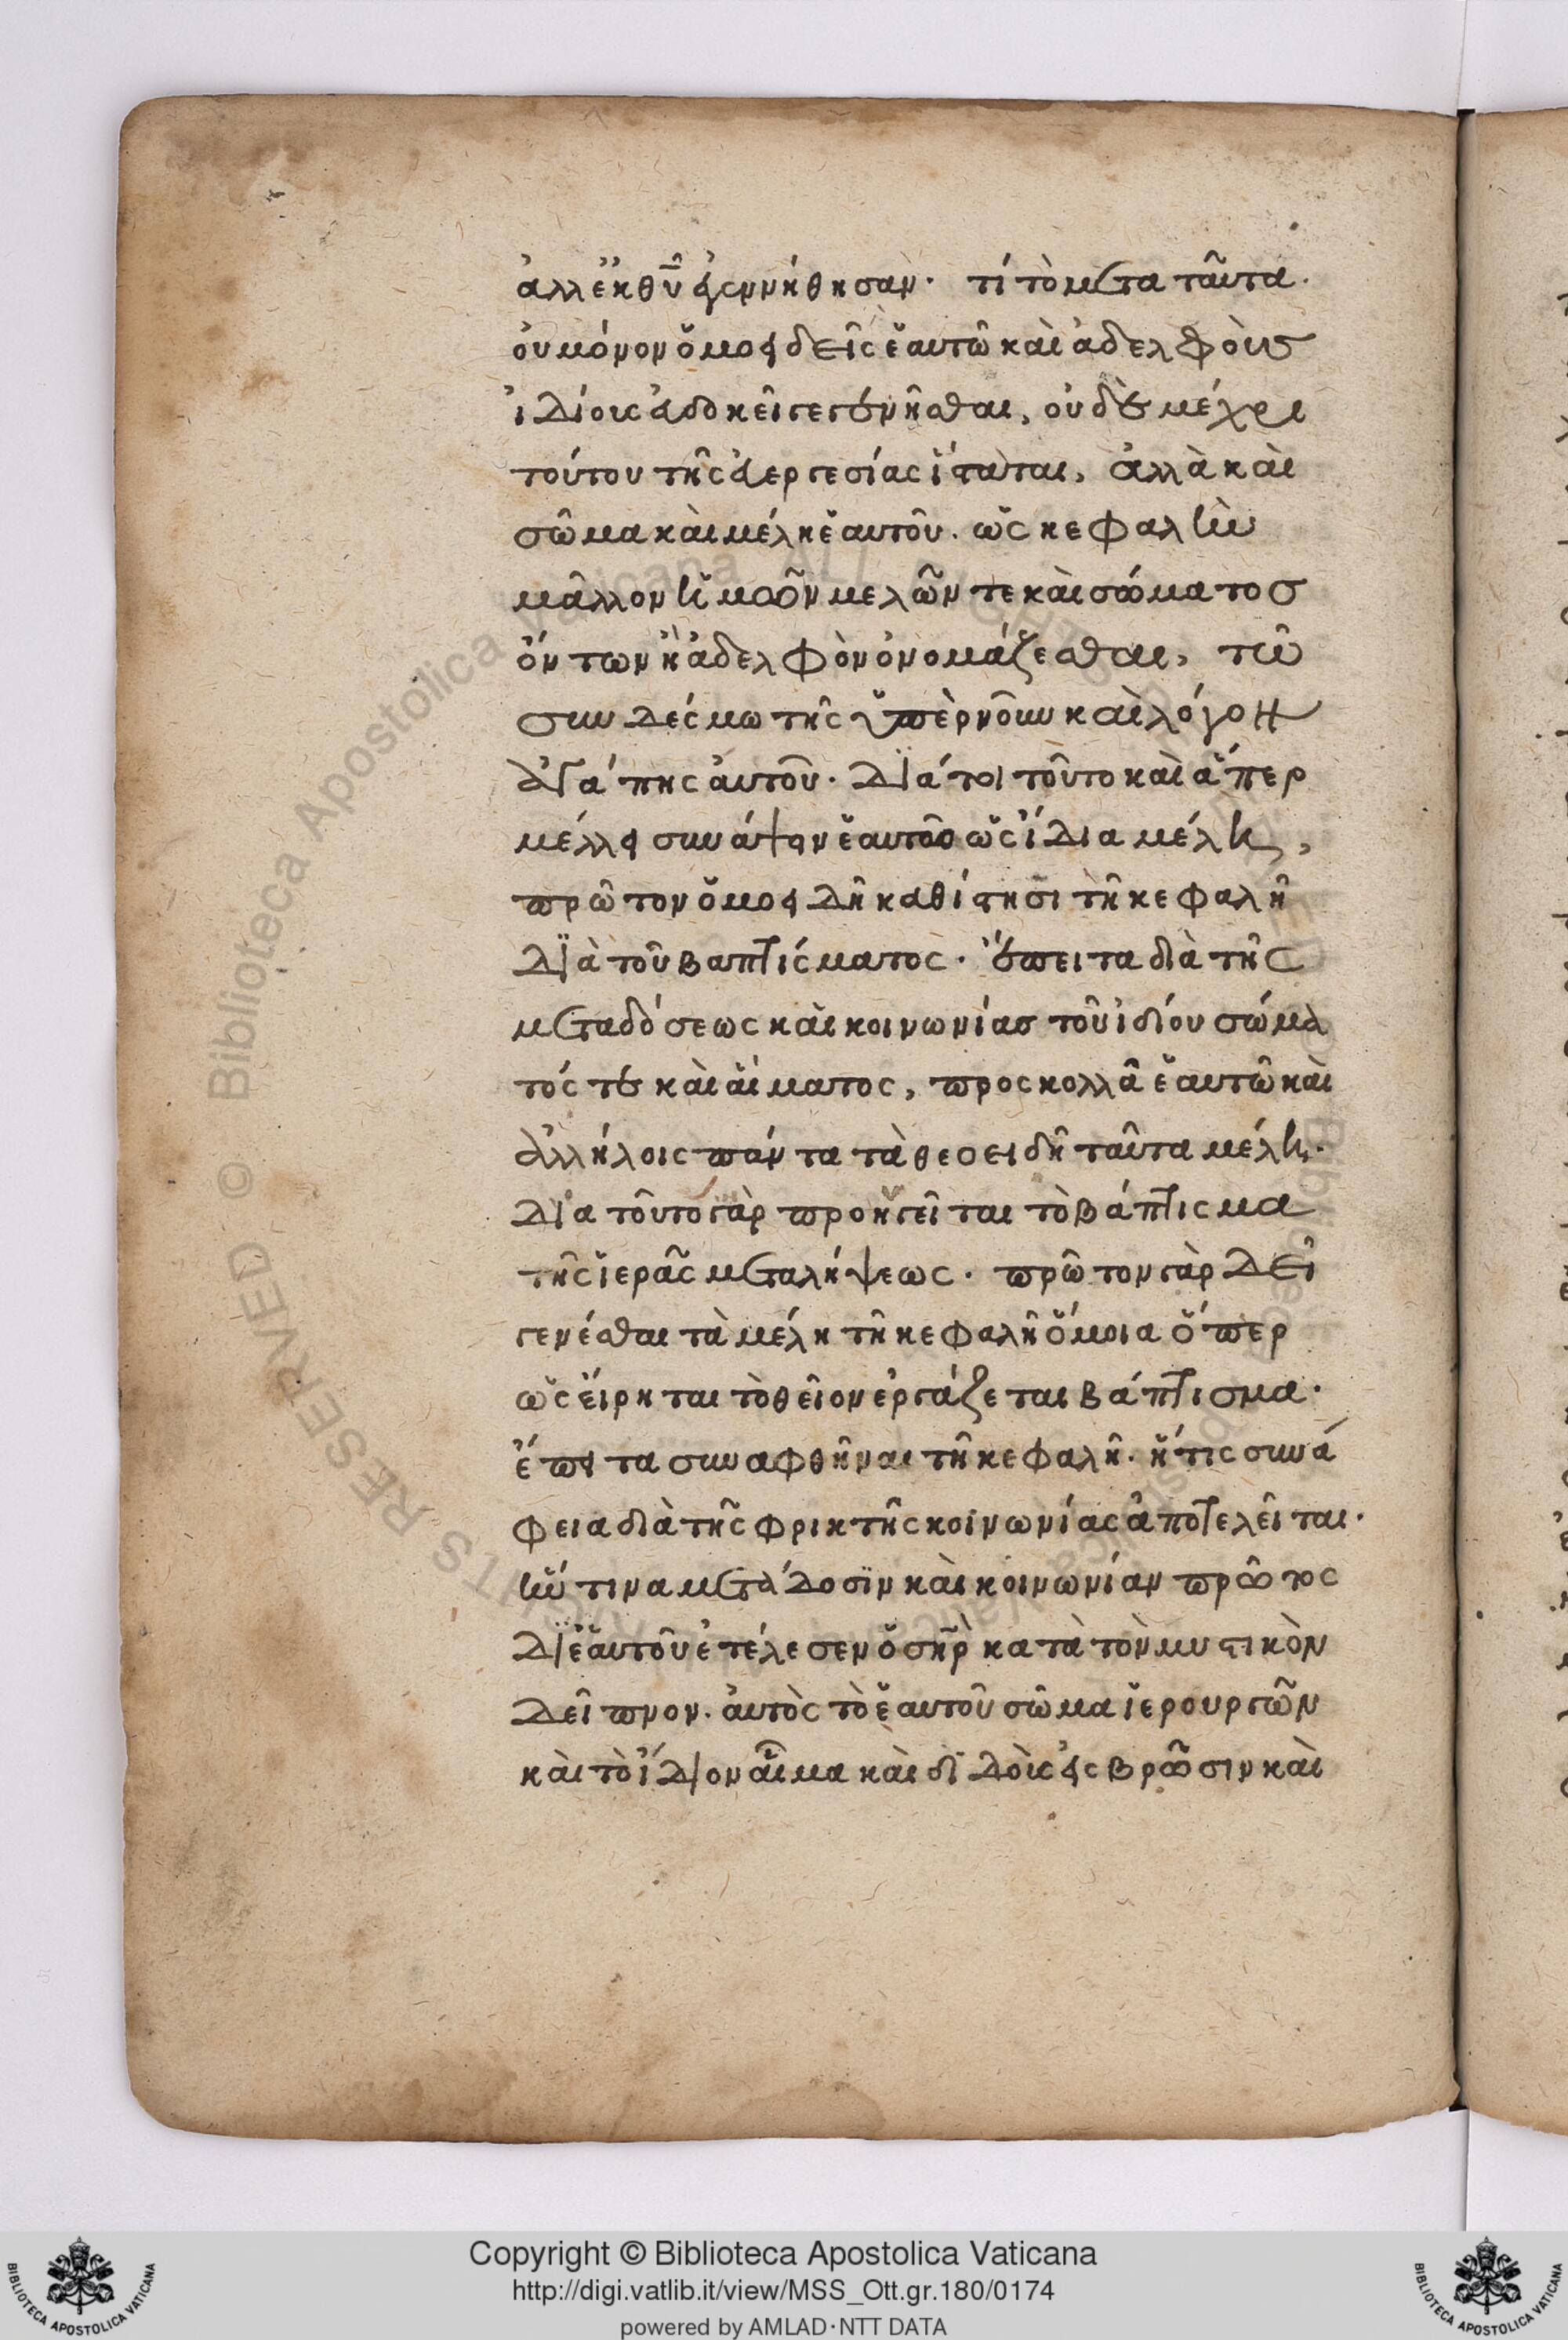 ἀλλ ἐκ θῦ ἐγεννήθησαν· τί τὸ μετα ταῦτα.
οὐ μόνον ὁμοειδεῖς ἑαυτῶ καὶ ἀδελφοὺς
ἰδίους εὐδοκεῖ γεγενῆσθαι, οὐδὲ μέχρι
τούτου τῆς εὐεργεσίας ἵσταται, ἀλλὰ καὶ
σῶμα καὶ μέλη ἑαυτοῦ. ὡς κεφαλὴν
μᾶλλον ἡμῶν μελῶν τε καὶ σώματος
ὄντων ἢ ἀδελφὸν ὀνομάζεσθαι, τῶ
συνδέσμω τῆς ὑπὲρ νοῦν καὶ λόγον
ἀγάπης αὐτοῦ. Διά τοι τοῦτο καὶ ἅπερ
μέλλει συνάψειν ἑαυτῶ ὡς ἴδια μέλη,
πρῶτον ὁμοειδῆ καθίστησι τῆ κεφαλῆ
Διὰ τοῦ βαπτίσματος. ἔπειτα διὰ τῆς
μεταδόσεως καὶ κοινωνίας τοῦ ἰδίου σώμα
τός τε καὶ αἵματος, προσκολλᾶ ἑαυτῶ καὶ
ἀλλήλοις πάντα τὰ θεοειδῆ ταῦτα μέλη.
Διὰ τοῦτο γὰρ προηγεῖται τὸ βάπτισμα
τῆς ἱερᾶς μεταλήψεως. πρῶτον γὰρ Δεῖ
γενέσθαι τὰ μέλη τῆ κεφαλῆ ὅμοια ὅπερ
ὡς εἴρηται τὸ θεῖον ἐργάζεται βάπτισμα.
ἔπειτα συναφθῆναι τῆ κεφαλῆ. ἥτις συνά
φεια διὰ τῆς φρικτῆς κοινωνίας ἀποτελεῖται.
ἥν τινα μετάδοσιν καὶ κοινωνίαν πρῶτος
Δι ἑαυτοῦ ἐτέλεσεν ὁ σηρ κατὰ τὸν μυστικὸν
Δεῖπνον. αὐτὸς τὸ ἑαυτοῦ σῶμα ἱερουργῶν
καὶ τὸ ἴδιον αἷμα καὶ διδοὺς εἰς βρῶσιν καὶ
Copyright © Biblioteca Apostolica Vaticana
http://digi.vatlib.it/view/MSS_Ott.gr.180/0174
powered by AMLAD·NTT DATA